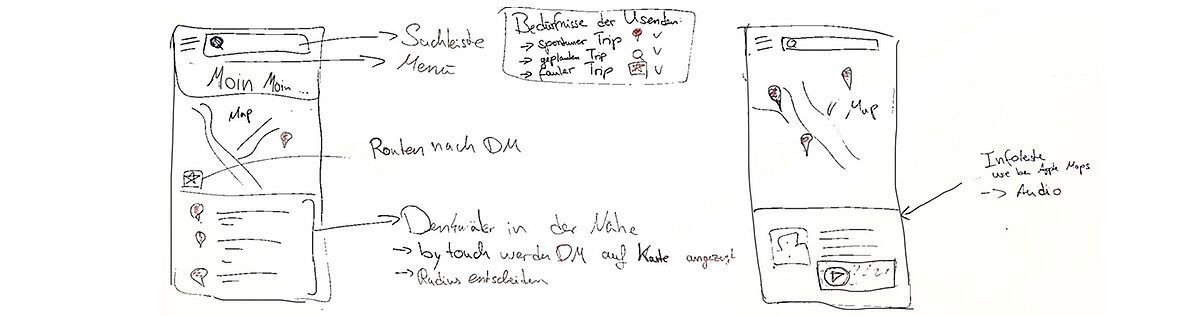 Suchleiste
Menü
Moin Moin ...
Map
Routen nach DM
Denkmäler in der Nähe
→ by touch werden DM auf Karte angezeigt
→ Radius entscheiden
Bedürfnisse der Usenden:
→ spontaner Trip
→ geplanten Trip
→ fauler Trip
Map
Infoleiste
wie bei Apple Maps
→ Audio